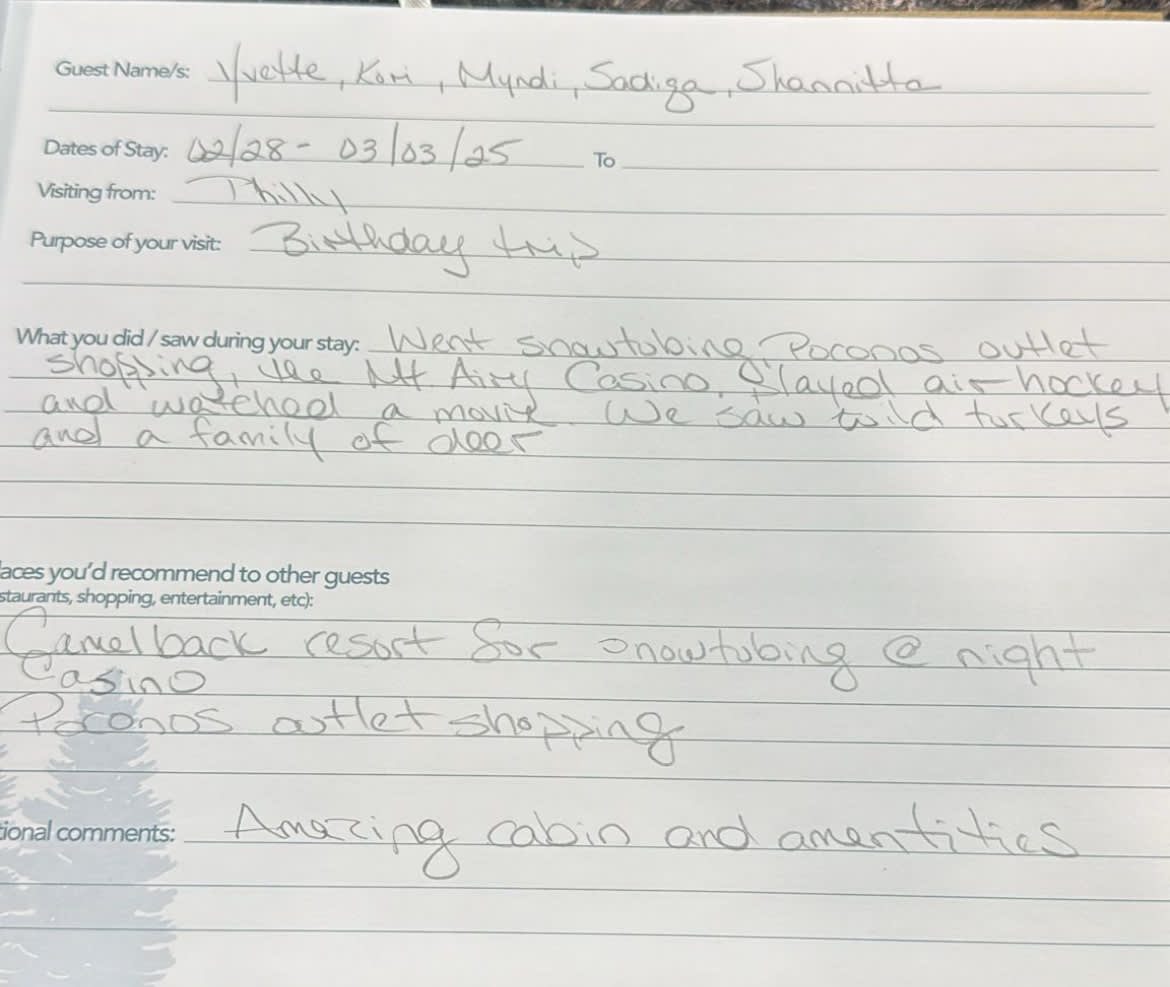 Guest Name/s: Yvette, Kori, Myndi, Sadiqa, Shannitta
Dates of Stay: 02/28 - 03/03/25 To
Visiting from: Philly
Purpose of your visit: Birthday trip
What you did / saw during your stay: Went snowtubing, Poconos outlet
shopping, the Mt Airy Casino, Played air-hockey
and watched a movie. We saw wild turkeys
and a family of deer
aces you'd recommend to other guests
staurants, shopping, entertainment, etc):
Camelback resort for snowtubing @ night
Casino
Poconos outlet shopping
tional comments: Amazing cabin and amentities